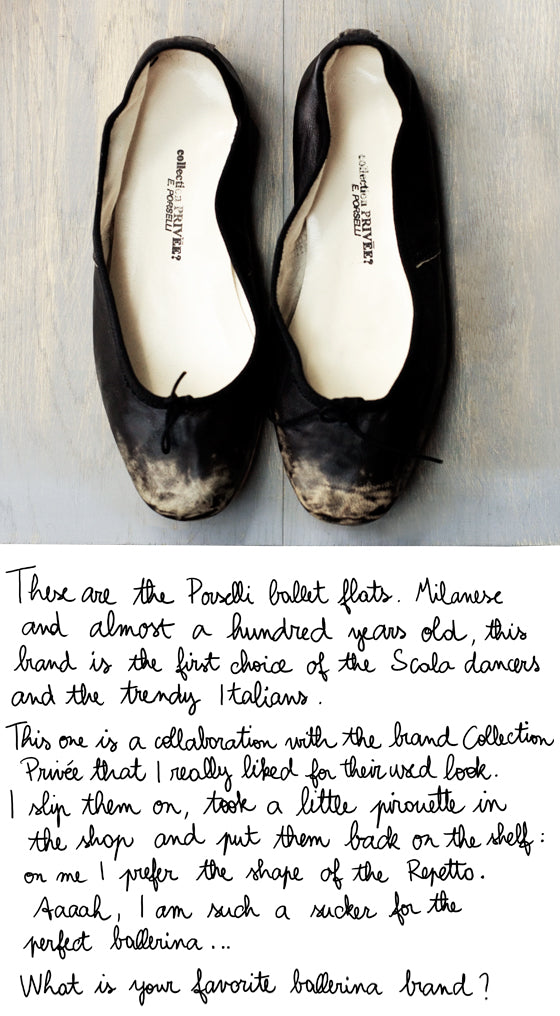 collection PRIVĒE?
E. PORSELLI
collection PRIVĒE?
E. PORSELLI
These are the Porselli ballet flats. Milanese
and almost a hundred years old, this
brand is the first choice of the Scala dancers
and the trendy Italians.
This one is a collaboration with the brand Collection
Privée that I really liked for their used look.
I slip them on, took a little pirouette in
the shop and put them back on the shelf:
on me I prefer the shape of the Repetto.
Aaaah, I am such a sucker for the
perfect ballerina...
What is your favorite ballerina brand?